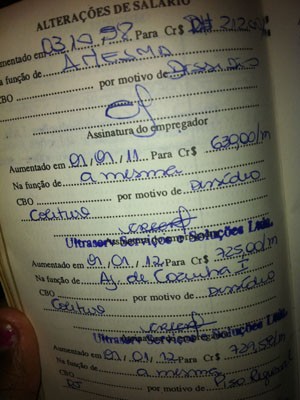 ALTERAÇÕES DE SALÁRIO
Aumentado em 03/ /98 Para Cr$ 212,
na função de A MESMA
CBO por motivo de DISSÍDIO
Assinatura do empregador
Aumentado em 01/01/11 Para Cr$ 639,00/m
Na função de a mesma
CBO por motivo de Dissídio
Coletivo
Ultraserv Serviços e Soluções Ltda.
Aumentado em 01/01/12 Para Cr$ 725,00/m
Na função de Aj de Cozinha I
CBO por motivo de Dissídio
Coletivo
Ultraserv Serviços e Soluções Ltda.
Aumentado em 01/01/12 Para Cr$
Na função de a mesma
CBO por motivo de Piso Regional